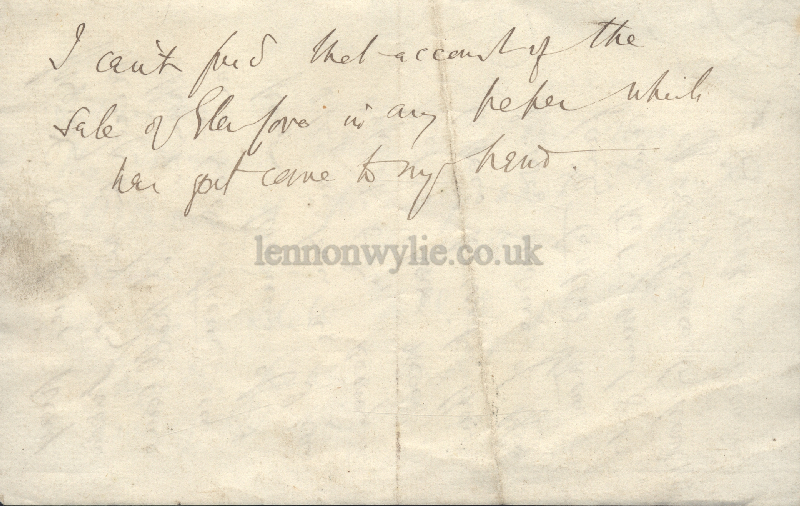 I can't find that account of the
sale of in any paper which
has yet come to my hand.
lennonwylie.co.uk